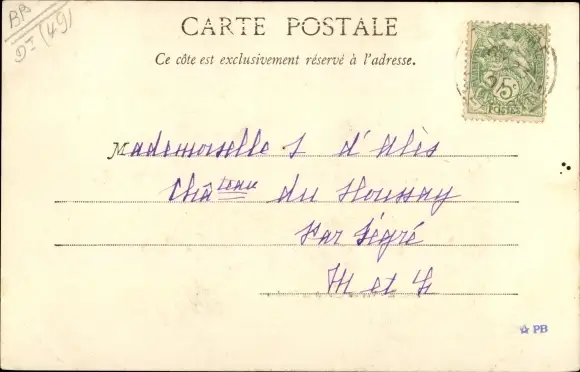 BB
DI (49)
CARTE POSTALE
Ce côte est exclusivement réservé à l'adresse.
5c
POSTES
Mademoiselle S d'Alès
Château du Houssay
Par Segré
M et L
PB